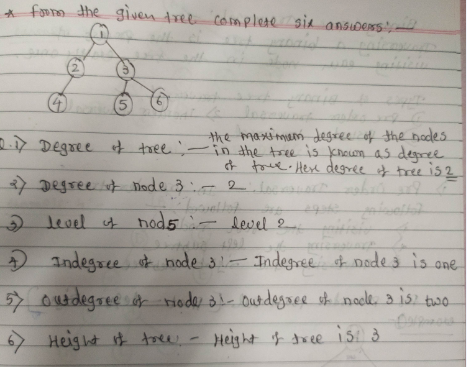 * from the given tree complete six answers:—
1
2 3
4 5 6
Q.1) Degree of tree :— the maximum degree of the nodes
in the tree is known as degree
of tree. Here degree of tree is 2
2) Degree of node 3 :— 2
3) level of nod5 :— level 2
4) Indegree of node 3 :— Indegree of node 3 is one
5) outdegree of node 3 :- outdegree of node 3 is two
6) Height of tree, - Height of tree is 3